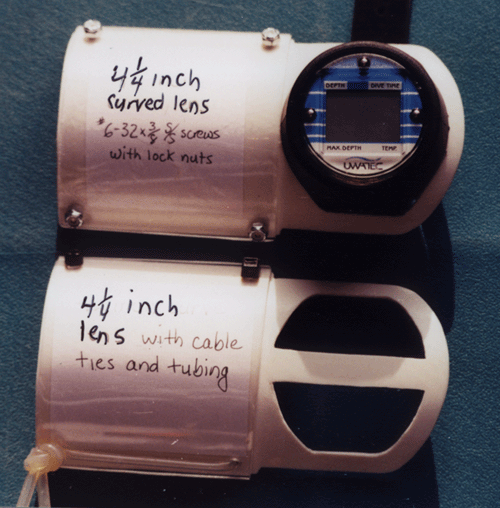 4 1/4 inch
curved lens
*6-32 x 3/8 S/S screws
with lock nuts
DEPTH DIVE TIME
MAX. DEPTH TEMP.
UWATEC
4 1/4 inch
lens with cable
ties and tubing